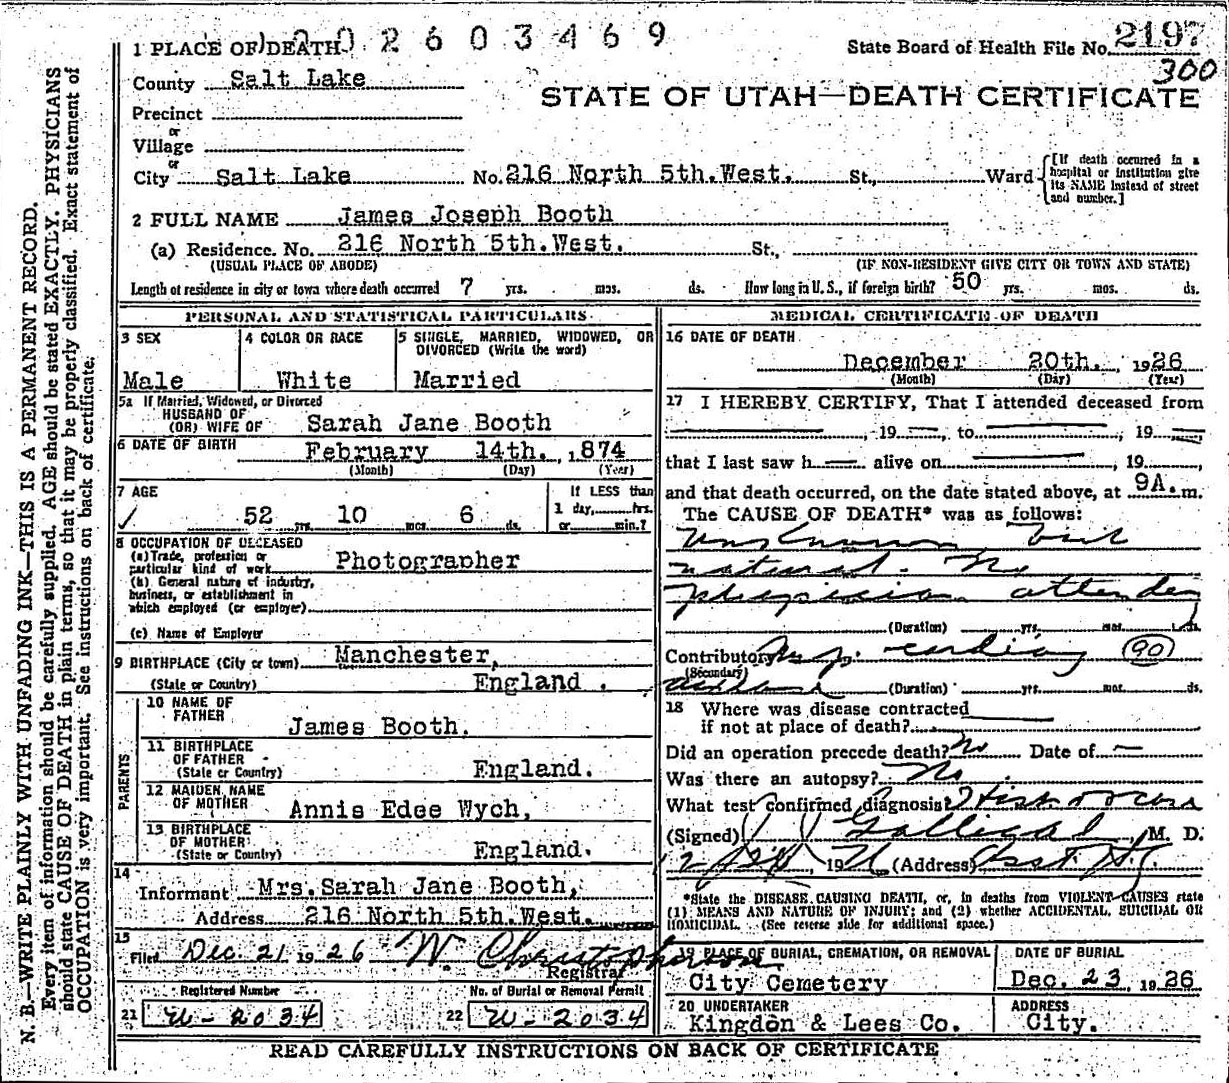 2603469
1 PLACE OF DEATH
State Board of Health File No. 2197
300
County Salt Lake
STATE OF UTAH—DEATH CERTIFICATE
Precinct
or
Village
or
City Salt Lake No. 216 North 5th. West. St., Ward
[If death occurred in a
hospital or institution give
its NAME instead of street
and number.]
2 FULL NAME James Joseph Booth
(a) Residence. No. 216 North 5th. West. St.,
(USUAL PLACE OF ABODE) (IF NON-RESIDENT GIVE CITY OR TOWN AND STATE)
Length of residence in city or town where death occurred 7 yrs. mos. ds. How long in U. S., if foreign birth? 50 yrs. mos. ds.
PERSONAL AND STATISTICAL PARTICULARS
3 SEX
Male
4 COLOR OR RACE
White
5 SINGLE, MARRIED, WIDOWED, OR
DIVORCED (Write the word)
Married
5a If Married, Widowed, or Divorced
HUSBAND OF
(OR) WIFE OF Sarah Jane Booth
6 DATE OF BIRTH
February 14th. 1874
(Month) (Day) (Year)
7 AGE
52 yrs. 10 mos. 6 ds.
If LESS than
1 day, hrs.
or min.?
8 OCCUPATION OF DECEASED
(a) Trade, profession or
particular kind of work Photographer
(b) General nature of industry,
business, or establishment in
which employed (or employer)
(c) Name of Employer
9 BIRTHPLACE (City or town) Manchester,
(State or Country) England.
PARENTS
10 NAME OF
FATHER
James Booth.
11 BIRTHPLACE
OF FATHER
(State or Country) England.
12 MAIDEN NAME
OF MOTHER
Annis Edee Wych,
13 BIRTHPLACE
OF MOTHER
(State or Country) England.
14
Informant Mrs. Sarah Jane Booth,
Address 216 North 5th. West.
15
Filed Dec. 21 1926 W. Christopherson
Registrar
Registered Number
21 W-2034
No. of Burial or Removal Permit
22 W-2034
MEDICAL CERTIFICATE OF DEATH
16 DATE OF DEATH
December 20th. 1926
(Month) (Day) (Year)
17 I HEREBY CERTIFY, That I attended deceased from
, 19 , to , 19
that I last saw h alive on , 19 ,
and that death occurred, on the date stated above, at 9A. m.
The CAUSE OF DEATH* was as follows:
Unknown, but
natural. No
physician attended
(Duration) yrs. mos. ds.
Contributory cardiac 90
(Secondary)
(Duration) yrs. mos. ds.
18 Where was disease contracted
if not at place of death?
Did an operation precede death? No Date of —
Was there an autopsy? No
What test confirmed diagnosis?
(Signed) M. D.
(Address)
*State the DISEASE CAUSING DEATH, or, in deaths from VIOLENT CAUSES state
(1) MEANS AND NATURE OF INJURY; and (2) whether ACCIDENTAL, SUICIDAL OR
HOMICIDAL. (See reverse side for additional space.)
19 PLACE OF BURIAL, CREMATION, OR REMOVAL
City Cemetery
DATE OF BURIAL
Dec. 23, 1926
20 UNDERTAKER
Kingdon & Lees Co.
ADDRESS
City.
READ CAREFULLY INSTRUCTIONS ON BACK OF CERTIFICATE
N. B.—WRITE PLAINLY WITH UNFADING INK—THIS IS A PERMANENT RECORD.
Every item of information should be carefully supplied. AGE should be stated EXACTLY. PHYSICIANS
should state CAUSE OF DEATH in plain terms, so that it may be properly classified. Exact statement of
OCCUPATION is very important. See instructions on back of certificate.